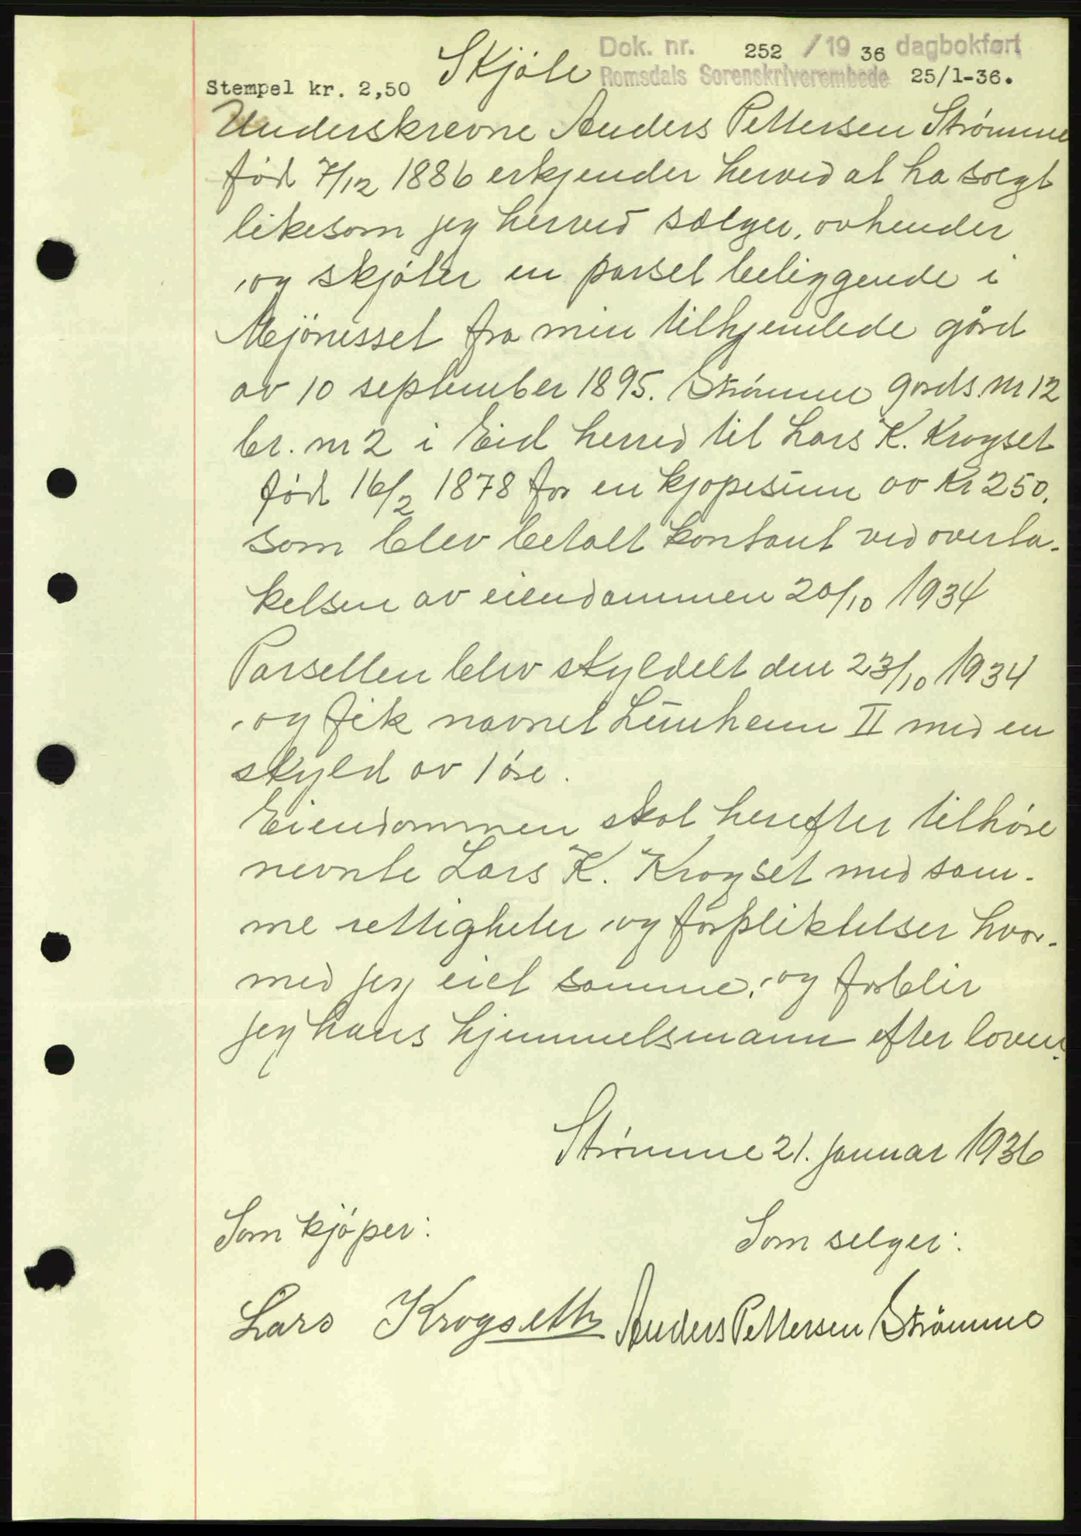 Dok. nr. 252 / 19 36 dagbokført
Skjøte Romsdals Sorenskriverembede 25/1-36.
Stempel kr. 2,50
Underskrevne Anders Pettersen Strømme
fød 7/12 1886 erkjender herved at ha solgt
likesom jeg herved sælger, avhender
og skjøter en parsel beliggende i
fra min tilhjemlede gård
av 10 september 1895. Strømme gards nr 12
br. nr 2 i Eid herred til Lars K. Krogset
fød 16/2 1878 for en kjøpesum av kr 250.
som blev betalt kontant ved overta-
kelsen av eiendommen 20/10 1934
Parsellen blev skyldelt den 23/10 1934
og fik navnet Lunheim II med en
skyld av 1 øre.
Eiendommen skal herefter tilhøre
nevnte Lars K. Krogset med sam-
me rettigheter og forpliktelser hvor-
med jeg eiet samme, og forblir
jeg hans hjemmelsmann efter loven.
Strømme 21. januar 1936
Som kjøper: Som selger:
Lars Krogseth Anders Pettersen Strømme